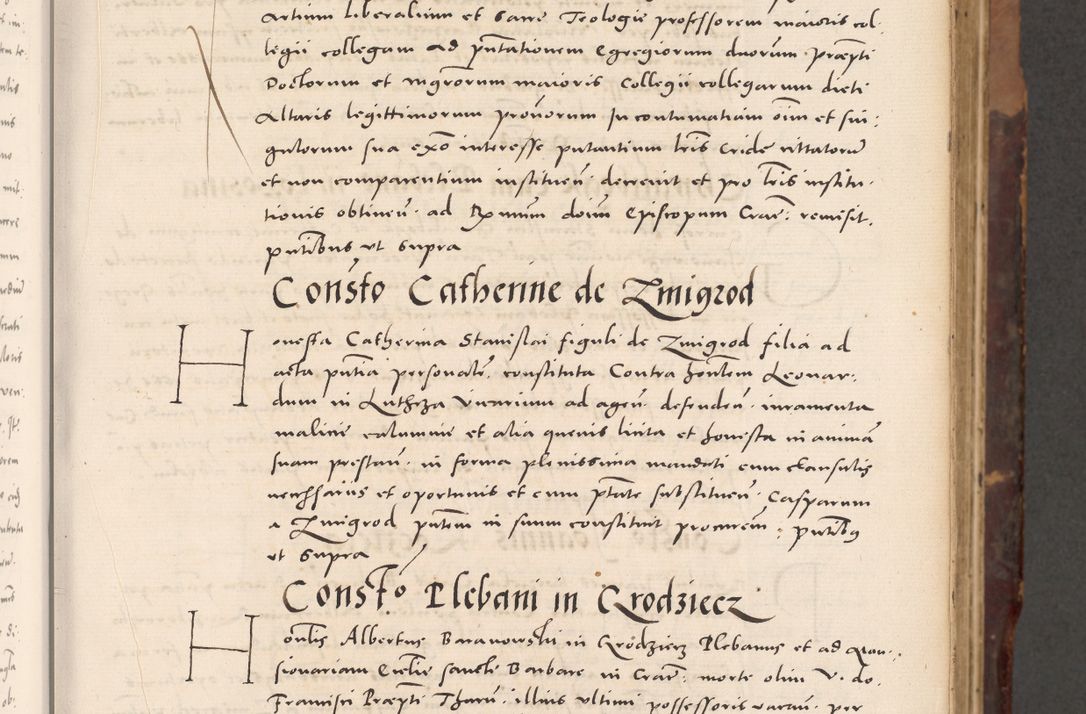 artium liberalium et sacre Teologie professorem maioris col-
legii collegam ad pntationem Egregiorum duorum præpti
Doctorum et mgrorum maioris Collegii collegarum dicti
Altaris legittimorum prouorum In contumatiam oim et sin:
gulorum sua exo interesse putantium lris Cride cittatorum
et non comparentium instituen: decreuit et pro lris institu-
tionis obtinen: ad Rmum dnum Episcopum Crac: remisit.
pntibus ut supra
Consto Catherine de Zmigrod
Honesta Catherina Stanislai figuli de Zmigrod filia ad
acta pntia personalr: constituta Contra honestem Leonar:
dum in Luthcza Vicarium ad agen: defenden: iuramenta
malicie calumnie et alia queuis licita et honesta in animam
suam prestan: in forma plenissima mandati cum clausulis
necessariis et oportunis et cum ptate substituen: Casparum
a Zmigrod pntem in suum constituit procurem: pntibus
ut supra
Consto Plebani in Grodziecz
Honlis Albertus Baranowski in Grodziecz Plebanus et ad Man-
sionariam Ecclie sancte Barbare in Crac: morte olim V. do.
Francisci Præpti Tharn: illius ultimi possessoris vacan: per